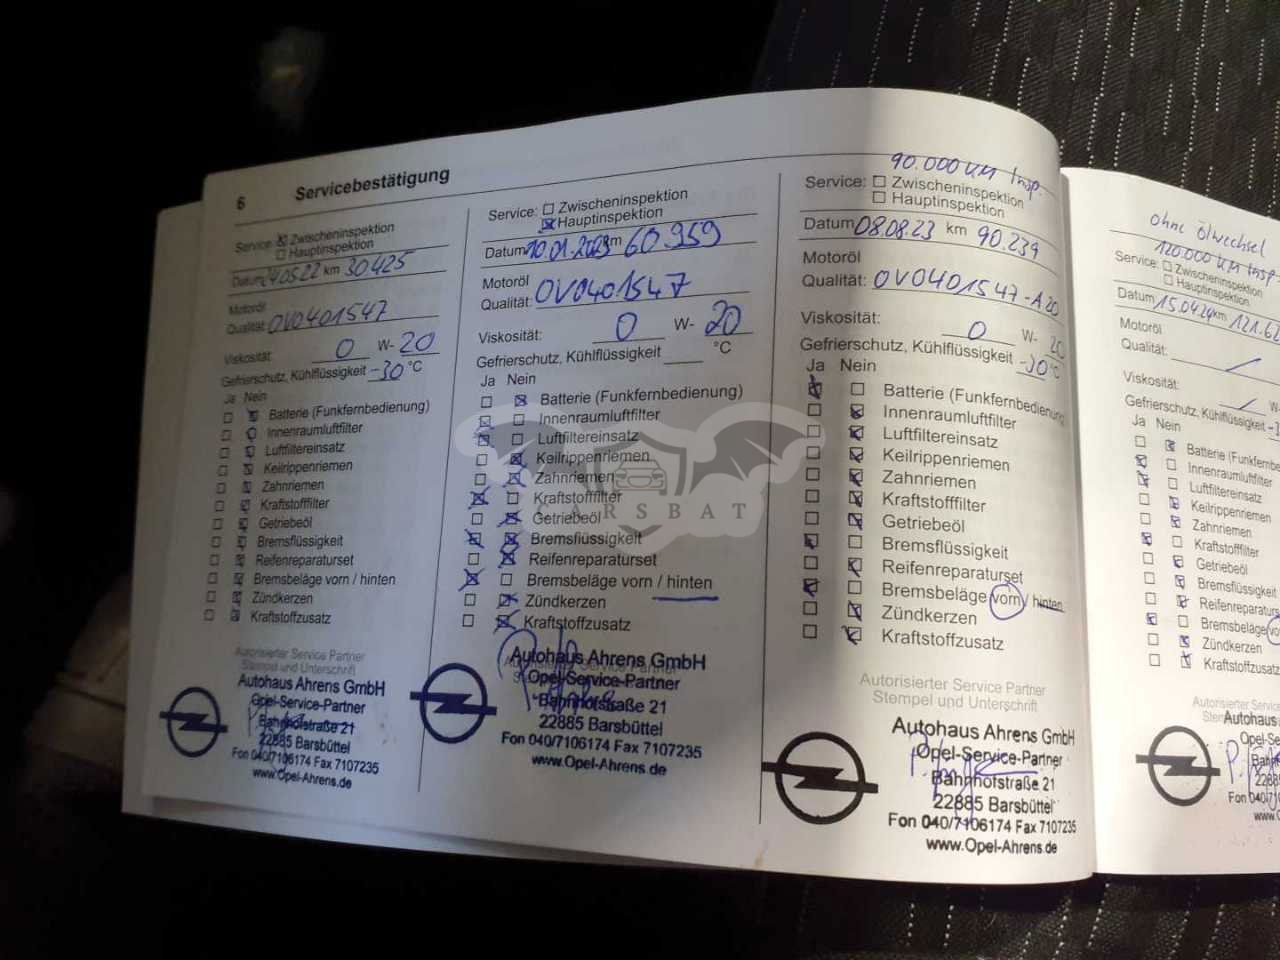 6 Servicebestätigung
Service: Zwischeninspektion
Hauptinspektion
Datum 24.05.22 km 30425
Motoröl
Qualität: OV0401547
Viskosität: 0 W- 20
Gefrierschutz, Kühlflüssigkeit -30 °C
Ja Nein
Batterie (Funkfernbedienung)
Innenraumluftfilter
Luftfiltereinsatz
Keilrippenriemen
Zahnriemen
Kraftstofffilter
Getriebeöl
Bremsflüssigkeit
Reifenreparaturset
Bremsbeläge vorn / hinten
Zündkerzen
Kraftstoffzusatz
Autorisierter Service Partner
Stempel und Unterschrift
Autohaus Ahrens GmbH
Opel-Service-Partner
Bahnhofstraße 21
22885 Barsbüttel
Fon 040/7106174 Fax 7107235
www.Opel-Ahrens.de
Service: Zwischeninspektion
Hauptinspektion
Datum 10.01.2023 km 60959
Motoröl
Qualität: OV0401547
Viskosität: 0 W- 20
Gefrierschutz, Kühlflüssigkeit °C
Ja Nein
Batterie (Funkfernbedienung)
Innenraumluftfilter
Luftfiltereinsatz
Keilrippenriemen
Zahnriemen
Kraftstofffilter
Getriebeöl
Bremsflüssigkeit
Reifenreparaturset
Bremsbeläge vorn / hinten
Zündkerzen
Kraftstoffzusatz
Autohaus Ahrens GmbH
Opel-Service-Partner
Bahnhofstraße 21
22885 Barsbüttel
Fon 040/7106174 Fax 7107235
www.Opel-Ahrens.de
90.000 KM Insp.
Service: Zwischeninspektion
Hauptinspektion
Datum 08.08.23 km 90.239
Motoröl
Qualität: OV0401547-A20
Viskosität: 0 W- 20
Gefrierschutz, Kühlflüssigkeit -30 °C
Ja Nein
Batterie (Funkfernbedienung
Innenraumluftfilter
Luftfiltereinsatz
Keilrippenriemen
Zahnriemen
Kraftstofffilter
Getriebeöl
Bremsflüssigkeit
Reifenreparaturset
Bremsbeläge vorn / hinten
Zündkerzen
Kraftstoffzusatz
Autorisierter Service Partner
Stempel und Unterschrift
Autohaus Ahrens GmbH
Opel-Service-Partner
Bahnhofstraße 21
22885 Barsbüttel
Fon 040/7106174 Fax 7107235
www.Opel-Ahrens.de
ohne Ölwechsel
120.000 KM Insp.
Service: Zwischeninspektion
Hauptinspektion
Datum 15.04.24 km 121.62
Motoröl
Qualität:
Viskosität: W
Gefrierschutz, Kühlflüssigkeit -3
Ja Nein
Batterie (Funkfernbe
Innenraumluftfilter
Luftfiltereinsatz
Keilrippenriemen
Zahnriemen
Kraftstofffilter
Getriebeöl
Bremsflüssigkeit
Reifenreparatur
Bremsbeläge
Zündkerzen
Kraftstoffzusatz
Autorisierter Service
Autohaus A
Opel-Se
Fon 040/71
www.O
CARSBAT